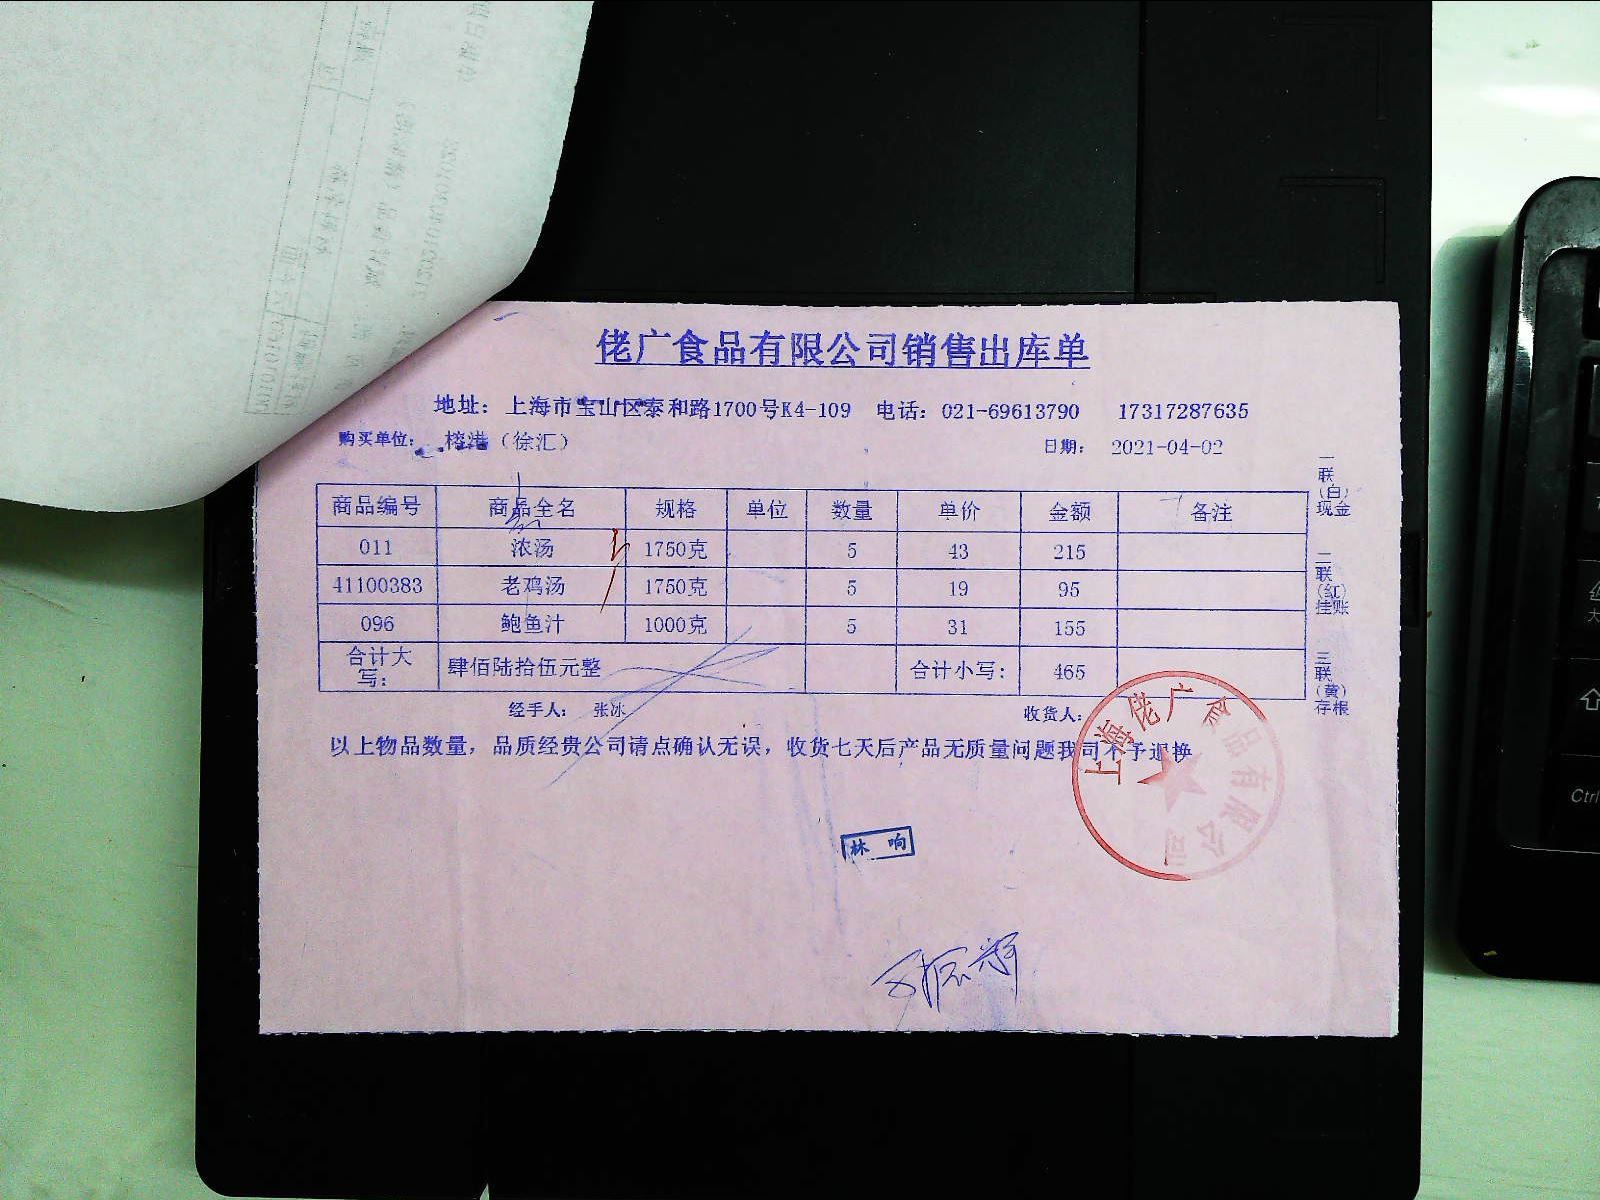 佬广食品有限公司销售出库单
地址：上海市宝山区泰和路1700号K4-109 电话：021-69613790 17317287635
购买单位：榕港（徐汇） 日期：2021-04-02
商品编号 商品全名 规格 单位 数量 单价 金额 备注
011 浓汤 1750克 5 43 215
41100383 老鸡汤 1750克 5 19 95
096 鲍鱼汁 1000克 5 31 155
合计大写： 肆佰陆拾伍元整 合计小写： 465
经手人： 张冰 收货人：
以上物品数量，品质经贵公司请点确认无误，收货七天后产品无质量问题我司不予退换
一联（白）现金
二联（红）挂账
三联（黄）存根
上海佬广食品有限公司
林响
Ctrl